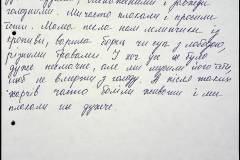 голодними. Ми часто плакали і просили
їсти. Мама пекла нам млинчики із
кропиви, варила борщ чи суп з лободою,
різними травами. І хоч це не було
дуже смачно, але ми мусили його їсти,
щоб не вмерти з голоду. А після таких
харчів часто боліли животи і ми
плакали ще дужче.